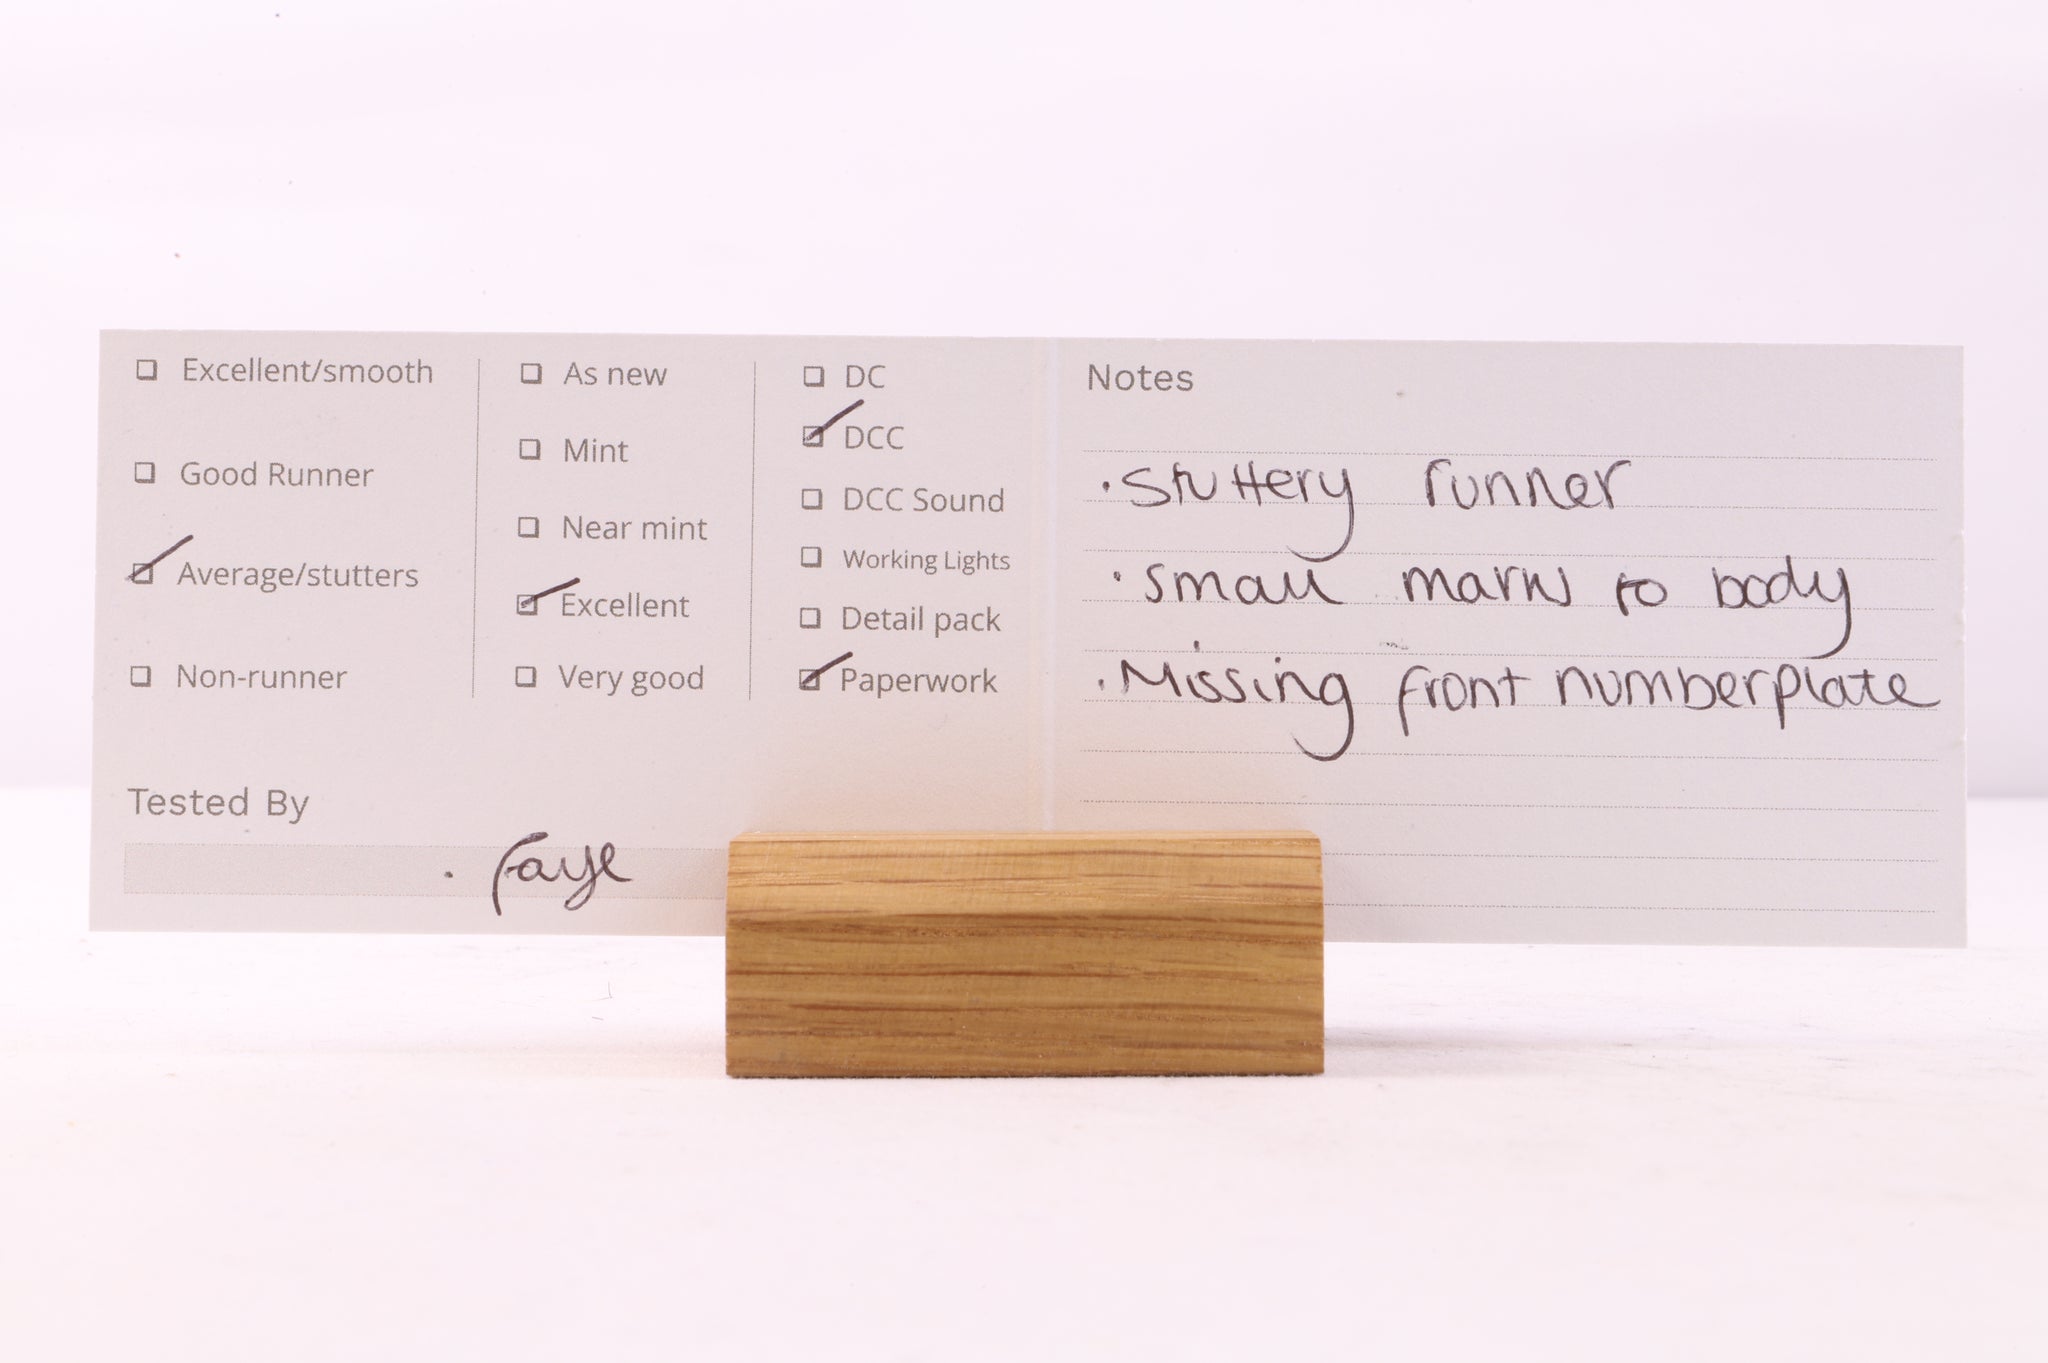 ☐ Excellent/smooth
☐ Good Runner
☑ Average/stutters
☐ Non-runner
☐ As new
☐ Mint
☐ Near mint
☑ Excellent
☐ Very good
☐ DC
☑ DCC
☐ DCC Sound
☐ Working Lights
☐ Detail pack
☑ Paperwork
Tested By
. Faye
Notes
· Stuttery runner
· Small marks to body
· Missing front numberplate